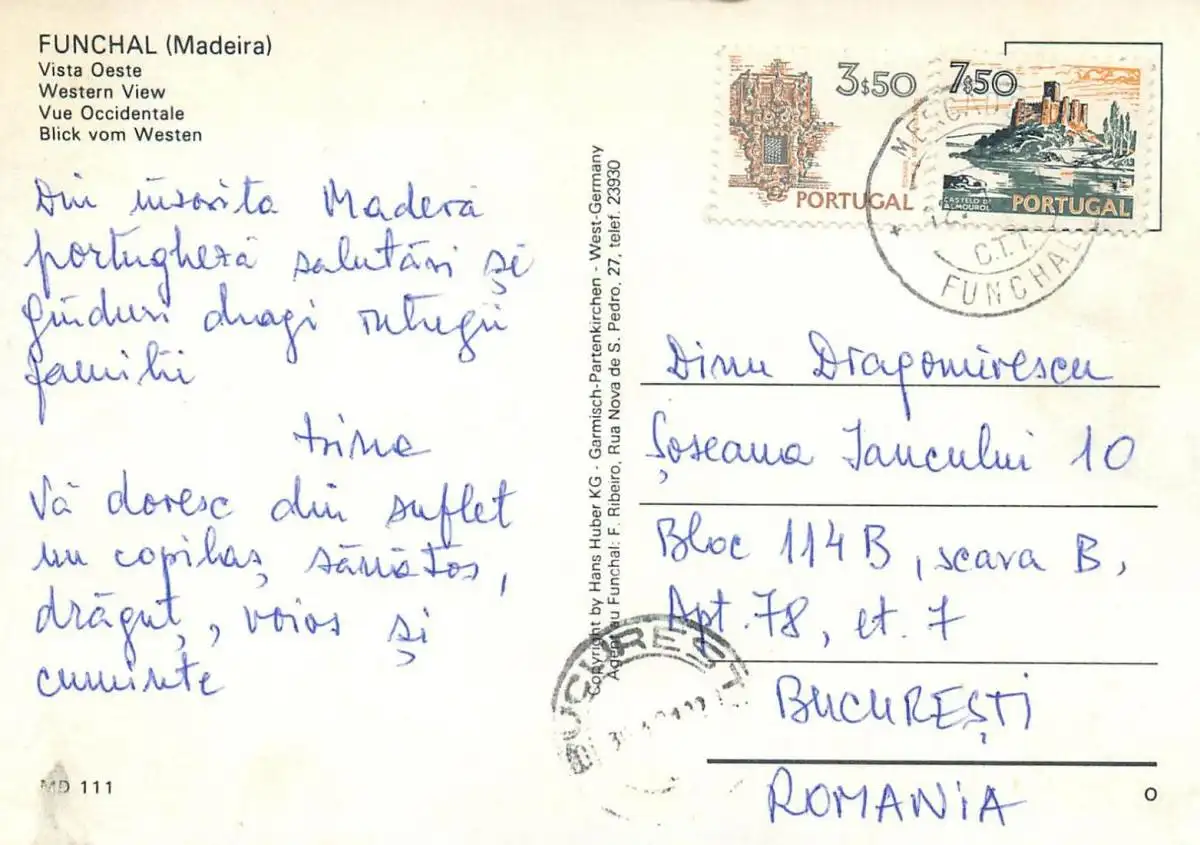 FUNCHAL (Madeira)
Vista Oeste
Western View
Vue Occidentale
Blick vom Westen
Din însorita Maderă
portugheză salutări și
gînduri dragi întregii
familii
Irina
Vă doresc din suflet
un copilaș sănătos,
drăguț, voios și
cuminte
MD 111
Copyright by Hans Huber KG - Garmisch-Partenkirchen - West-Germany
Agent au Funchal: F. Ribeiro, Rua Nova de S. Pedro, 27, telef. 23930
3$50
PORTUGAL
7$50
CASTELO DE
ALMOUROL
PORTUGAL
C.T.T.
FUNCHAL
Dinu Dragomirescu
Șoseaua Iancului 10
Bloc 114B, scara B,
Apt. 78, et. 7
BUCUREȘTI
ROMANIA
BUCUREȘTI
O